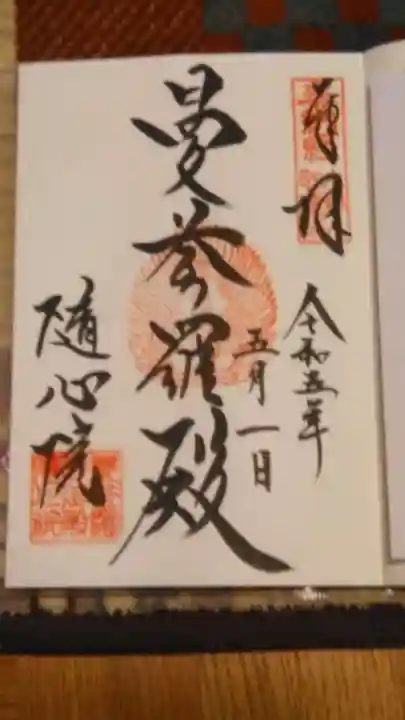 奉拝
令和五年
五月一日
曼荼羅殿
随心院